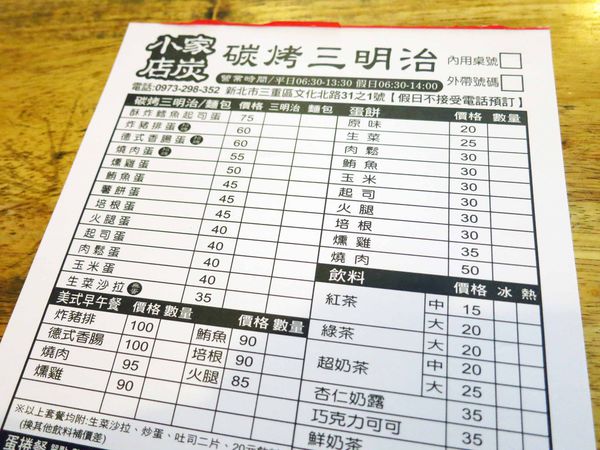 小家店炭
碳烤三明治
內用桌號
外帶號碼
營業時間/平日06:30-13:30 假日06:30-14:00
電話:0973-298-352 新北市三重區文化北路31之1號【假日不接受電話預訂】
碳烤三明治/麵包 價格 三明治 麵包
酥炸鱈魚起司蛋 75
炸豬排蛋 60
德式香腸蛋 60
燒肉蛋 55
燻雞蛋 50
鮪魚蛋 45
薯餅蛋 45
培根蛋 45
火腿蛋 40
起司蛋 40
肉鬆蛋 40
玉米蛋 40
生菜沙拉 35
蛋餅 價格 數量
原味 20
生菜 25
肉鬆 30
鮪魚 30
玉米 30
起司 30
火腿 30
培根 30
燻雞 35
燒肉 50
飲料 價格 冰 熱
紅茶 中 15
大 20
綠茶 大 20
超奶茶 中 20
大 25
杏仁奶露 30
巧克力可可 35
鮮奶茶 35
美式早午餐 價格 數量 價格 數量
炸豬排 100 鮪魚 90
德式香腸 100 培根 90
燒肉 95 火腿 85
燻雞 90
※以上套餐均附:生菜沙拉、炒蛋、吐司二片、20元飲
(換其他飲料補價差)
蛋捲餐